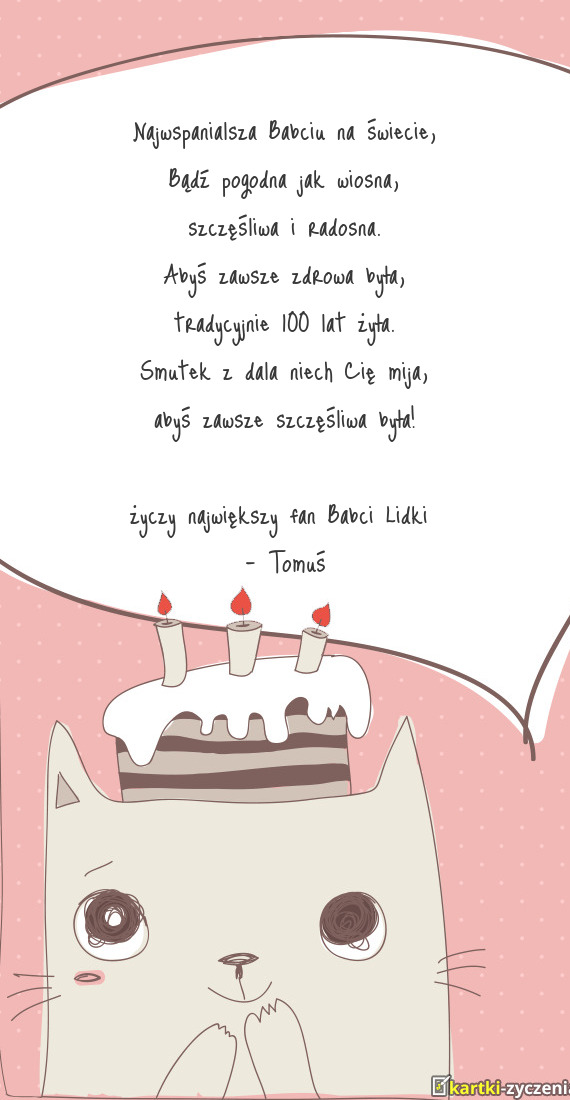 Najwspanialsza Babciu na świecie,
Bądź pogodna jak wiosna,
szczęśliwa i radosna.
Abyś zawsze zdrowa była,
tradycyjnie 100 lat żyła.
Smutek z dala niech Cię mija,
abyś zawsze szczęśliwa była!
życzy największy fan Babci Lidki
- Tomuś
kartki-zyczenia